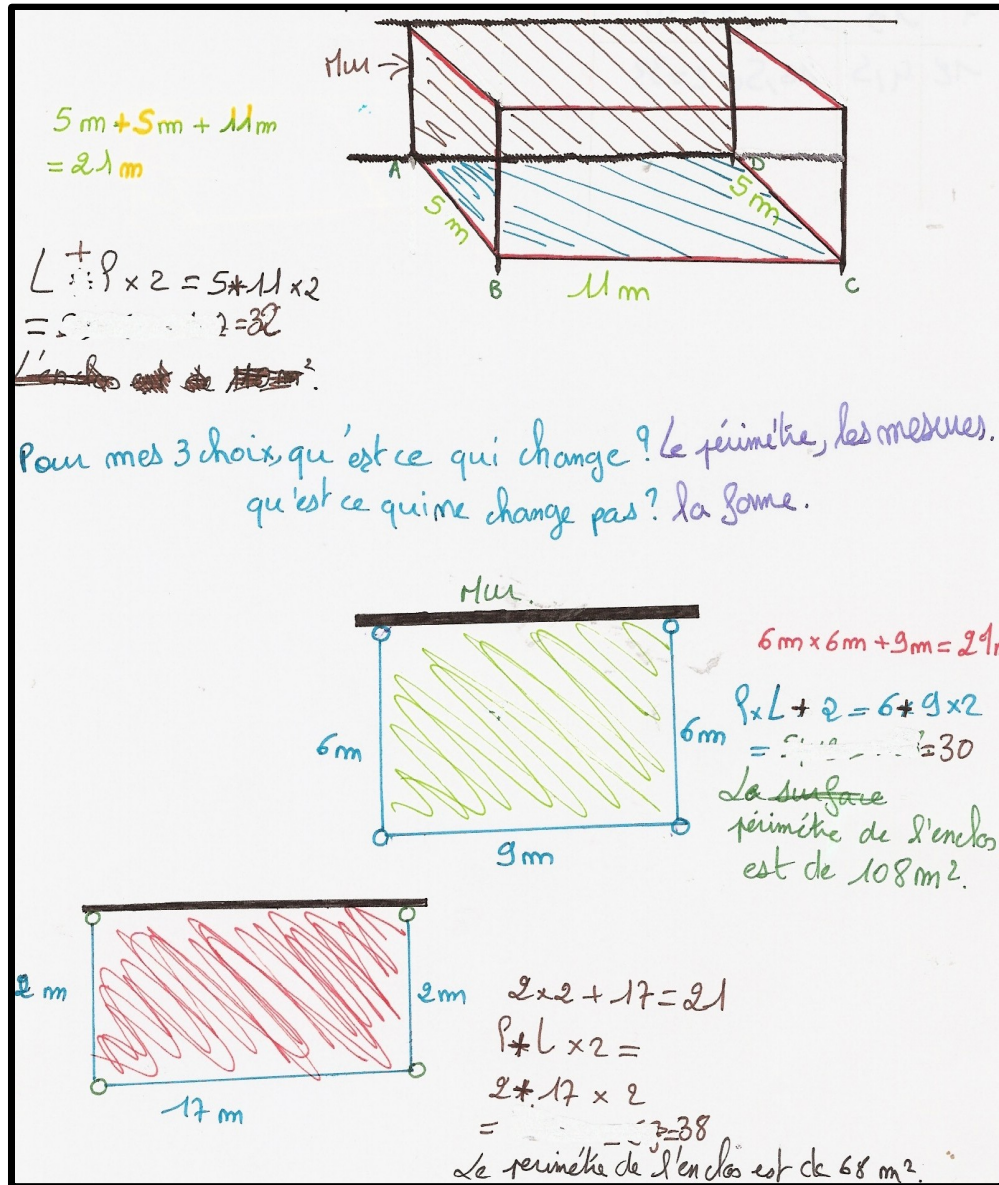 Mur →
5m + 5m + 11m
= 21m
A
D
5m
5m
B
11m
C
L + l × 2 = 5+11 × 2
= =32
L'enclos est de m².
Pour mes 3 choix, qu'est ce qui change? Le périmétre, les mesures.
qu'est ce qui ne change pas? la forme.
Mur.
6m
6m
9m
6m × 6m + 9m = 21m
l × L + 2 = 6+9 × 2
= =30
La surface
périmétre de l'enclos
est de 108 m².
2 m
2m
17 m
2×2 + 17 = 21
l+L × 2 =
2+17 × 2
= =38
Le perimétre de l'enclos est de 68 m².